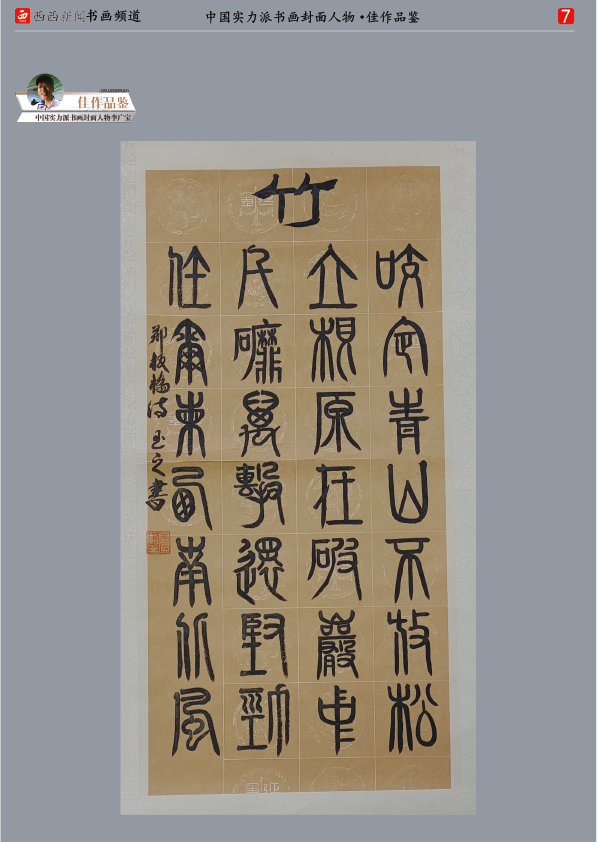 西 西西新闻书画频道
中国实力派书画封面人物·佳作品鉴
7
佳作品鉴
中国实力派书画封面人物李广宝
竹
咬定青山不放松
立根原在破巖中
千磨萬擊還堅勁
任爾東西南北風
郑板橋诗 玉之書